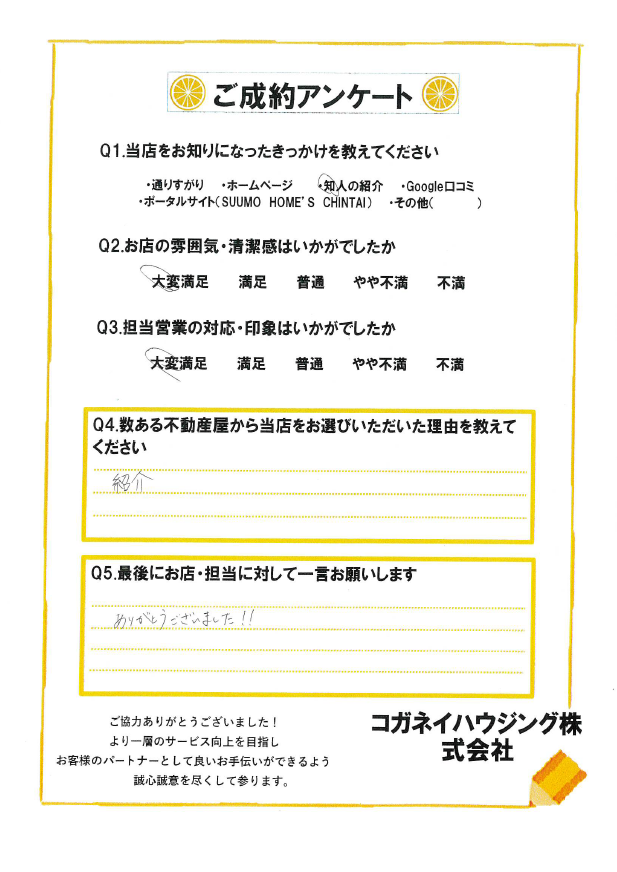 ご成約アンケート
Q1.当店をお知りになったきっかけを教えてください
・通りすがり ・ホームページ ・知人の紹介 ・Google口コミ
・ポータルサイト(SUUMO HOME'S CHINTAI) ・その他( )
Q2.お店の雰囲気・清潔感はいかがでしたか
大変満足 満足 普通 やや不満 不満
Q3.担当営業の対応・印象はいかがでしたか
大変満足 満足 普通 やや不満 不満
Q4.数ある不動産屋から当店をお選びいただいた理由を教えて
ください
紹介
Q5.最後にお店・担当に対して一言お願いします
ありがとうございました!!
ご協力ありがとうございました！
より一層のサービス向上を目指し
お客様のパートナーとして良いお手伝いができるよう
誠心誠意を尽くして参ります。
コガネイハウジング株
式会社